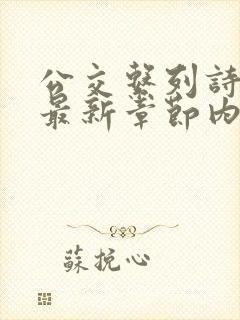 公交繫列詩
最新章節內
蘇挽心